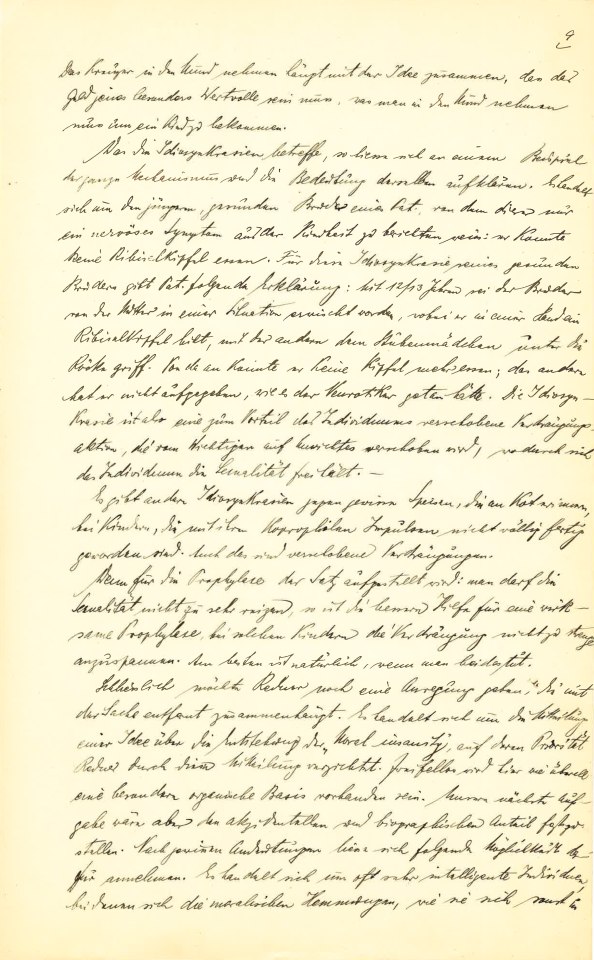 9
Das Kreuzer in den Mund nehmen hängt mit der Idee zusammen, dass das
Geld jenes besonders Wertvolle sein muss, was man in den Mund nehmen
muss um ein Kind zu bekommen.
Was die Idiosynkrasien betreffe, so liesse sich an einem Beispiel
der ganze Mechanismus und die Bedeutung derselben aufklären. Es handelt
sich um den jüngern, gesunden Bruder eines Pat. von dem dieser nur
ein nervöses Symptom aus der Kindheit zu berichten weiss: er konnte
keine Ribiselkipfel essen. Für diese Idiosynkrasie seines gesunden
Bruders gibt Pat. folgende Erklärung: mit 12/13 Jahren sei der Bruder
von der Mutter in einer Situation erwischt worden, wobei er in einer Hand ein
Ribiselkipfel hielt, mit der andern dem Stubenmädchen unter die
Röcke griff. Von da an konnte er keine Kipfel mehr essen; das andere
hat er nicht aufgegeben, wie es der Neurotiker getan hätte. Die Idiosyn-
krasie ist also eine zum Vorteil des Individuums verschobene Verdrängungs-
aktion, die vom Wichtigen auf Unwichtiges verschoben wird, wodurch sich
das Individuum die Sexualität frei hält. —
Es gibt andere Idiosynkrasien gegen gewisse Speisen, die an Kot erinnern,
bei Kindern, die mit ihren koprophilen Impulsen nicht völlig fertig
geworden sind. Auch das sind verschobene Verdrängungen.
Wenn für die Prophylaxe der Satz aufgestellt wird: man darf die
Sexualität nicht zu sehr reizen, so ist die bessere Hilfe für eine wirk-
same Prophylaxe, bei solchen Kindern die Verdrängung nicht zu strenge
anzuspannen. Am besten ist natürlich, wenn man beides tut.
Schliesslich möchte Redner noch eine Anregung geben, die mit
der Sache entfernt zusammenhängt. Es handelt sich um die Mitteilung
einer Idee über die Entstehung der „Moral insanity", auf deren Priorität
Redner durch diese Mitteilung verzichtet. Zweifellos wird hier wie überall
eine besondere organische Basis vorhanden sein. Unsere nächste Auf-
gabe wäre aber den akzidentellen und biographischen Anteil festzu-
stellen. Nach gewissen Andeutungen liesse sich folgende Möglichkeit da-
für annehmen. Es handelt sich um oft sehr intelligente Individuen,
bei denen sich die moralischen Hemmungen, wie sie sich sonst in